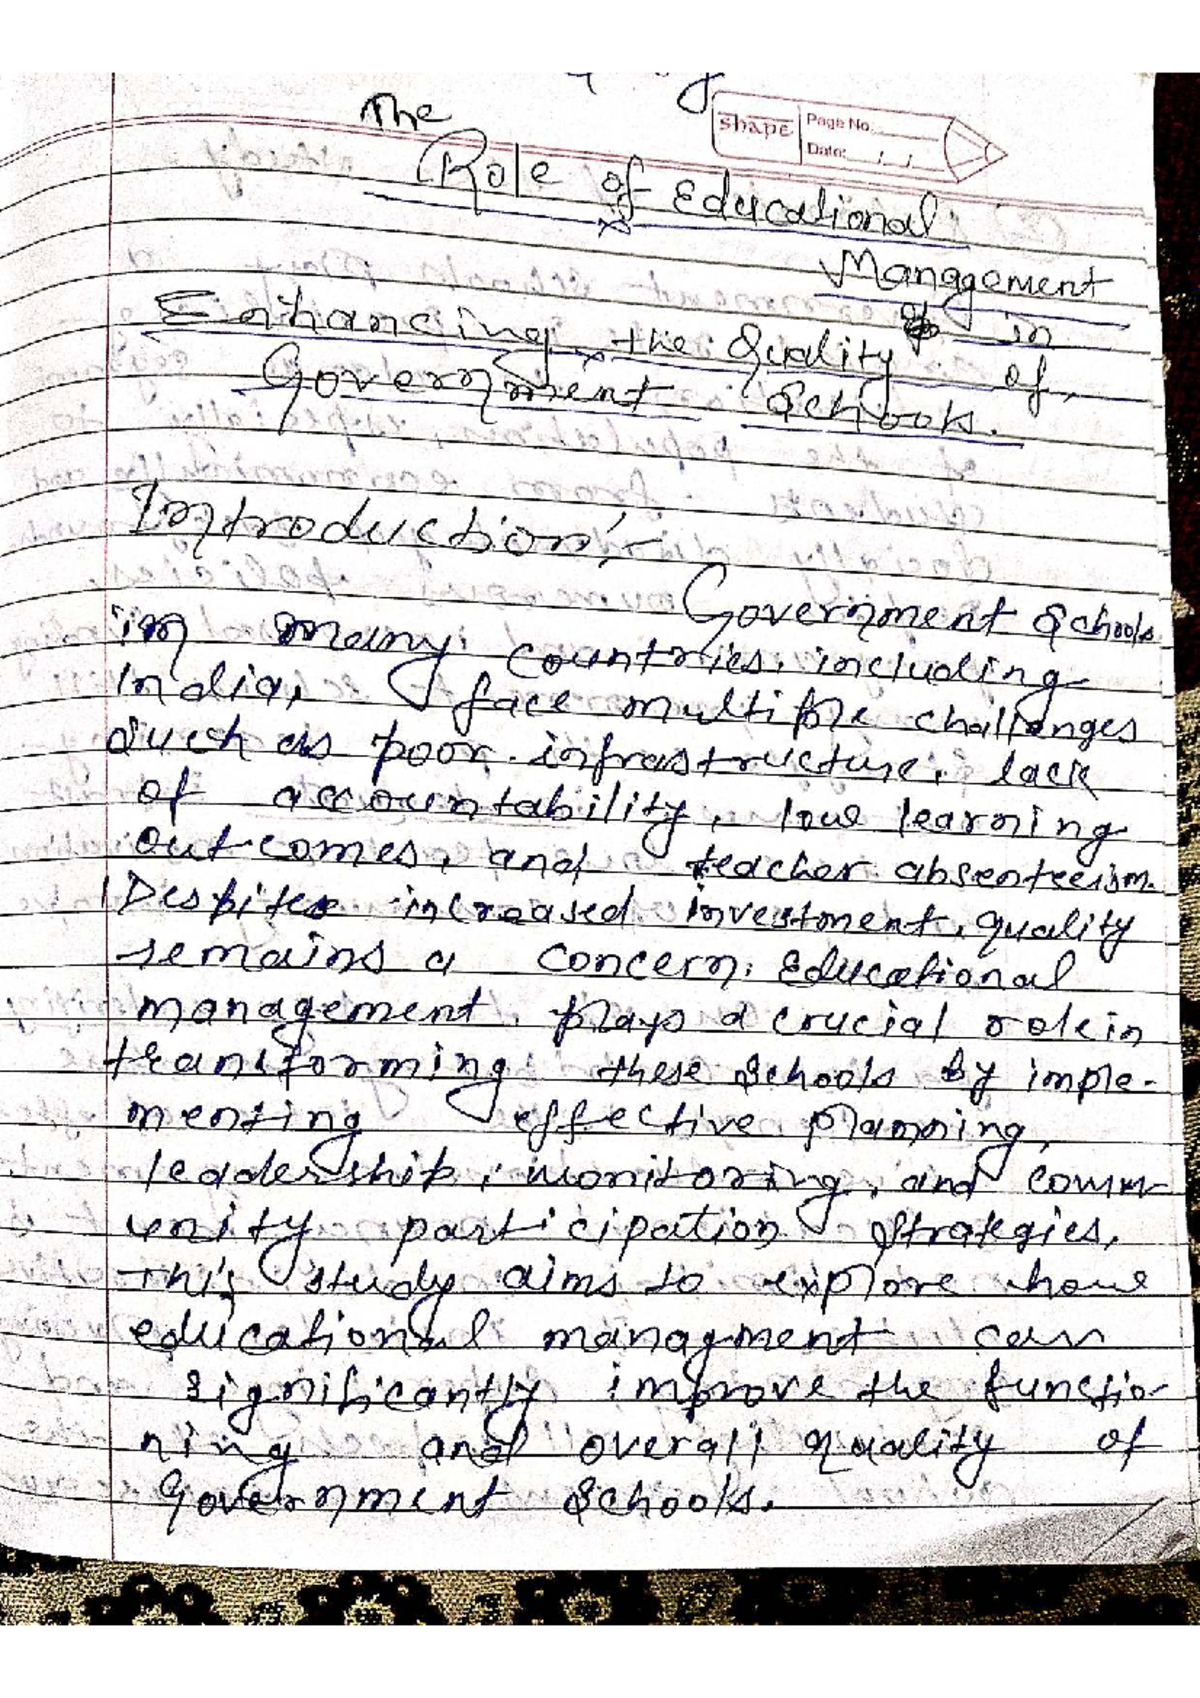 The
shape Page No.
Date: / /
Role of Educational
Management
in
Enhancing the Quality of
Government Schools.
Introduction:-
Government Schools
in many countries, including
India, face multiple challenges
such as poor infrastructure, lack
of accountability, low learning
outcomes, and teacher absenteeism.
Despites increased investment, quality
remains a concern. Educational
management plays a crucial role in
transforming these schools by imple-
menting effective planning,
leadership, monitoring, and comm-
unity participation strategies.
This study aims to explore how
educational managment can
significantly improve the functio-
ning and overall quality of
Government Schools.